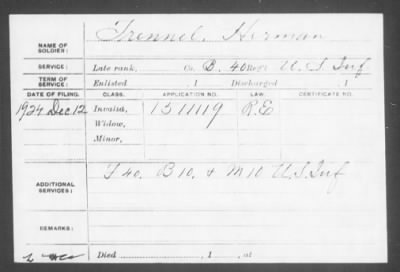 NAME OF SOLDIER: Trennel, Herman
SERVICE: Late rank, Co. B. 40 Reg't U.S. Inf
TERM OF SERVICE: Enlisted , 1 Discharged , 1
DATE OF FILING. CLASS. APPLICATION NO. LAW. CERTIFICATE NO.
1924 Dec 12 Invalid, 1511119 R.E
Widow,
Minor,
ADDITIONAL SERVICES: F 40. B 10. & M 10 U.S. Inf
REMARKS:
Died , 1 , at